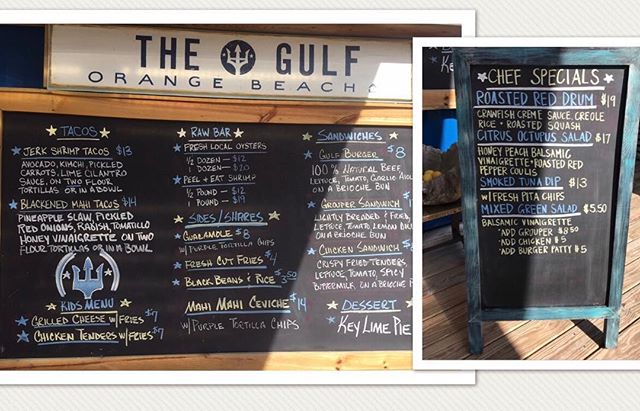 THE GULF
ORANGE BEACH
TACOS
JERK SHRIMP TACOS $13
AVOCADO, KIMCHI, PICKLED
CARROTS, LIME CILANTRO
SAUCE ON TWO FLOUR
TORTILLAS OR IN A BOWL
BLACKENED MAHI TACOS $14
PINEAPPLE SLAW, PICKLED
RED ONIONS, RADISH, TOMATILLO
HONEY VINAIGRETTE ON TWO
FLOUR TORTILLAS OR IN A BOWL
KIDS MENU
GRILLED CHEESE W/FRIES $7
CHICKEN TENDERS W/FRIES $7
RAW BAR
FRESH LOCAL OYSTERS
½ DOZEN - $12
1 DOZEN - $20
PEEL + EAT SHRIMP
½ POUND - $12
1 POUND - $19
SIDES/SHARES
GUACAMOLE $8
W/ PURPLE TORTILLA CHIPS
FRESH CUT FRIES $4
BLACK BEANS & RICE $3.50
MAHI MAHI CEVICHE $14
W/ PURPLE TORTILLA CHIPS
SANDWICHES
GULF BURGER $8
100% NATURAL BEEF,
LETTUCE, TOMATO, GARLIC AIOLI
ON A BRIOCHE BUN
GROUPER SANDWICH
LIGHTLY BREADED & FRIED,
LETTUCE, TOMATO, LEMON
ON A BRIOCHE BUN
CHICKEN SANDWICH
CRISPY FRIED TENDERS,
LETTUCE, TOMATO, SPICY
BUTTERMILK, ON A BRIOCHE
DESSERT
KEY LIME PIE
CHEF SPECIALS
ROASTED RED DRUM $19
CRAWFISH CREME SAUCE, CREOLE
RICE + ROASTED SQUASH
CITRUS OCTUPUS SALAD $17
HONEY PEACH BALSAMIC
VINAIGRETTE + ROASTED RED
PEPPER COULIS
SMOKED TUNA DIP $13
W/ FRESH PITA CHIPS
MIXED GREEN SALAD $5.50
BALSAMIC VINAIGRETTE
*ADD GROUPER $8.50
*ADD CHICKEN $5
*ADD BURGER PATTY $5